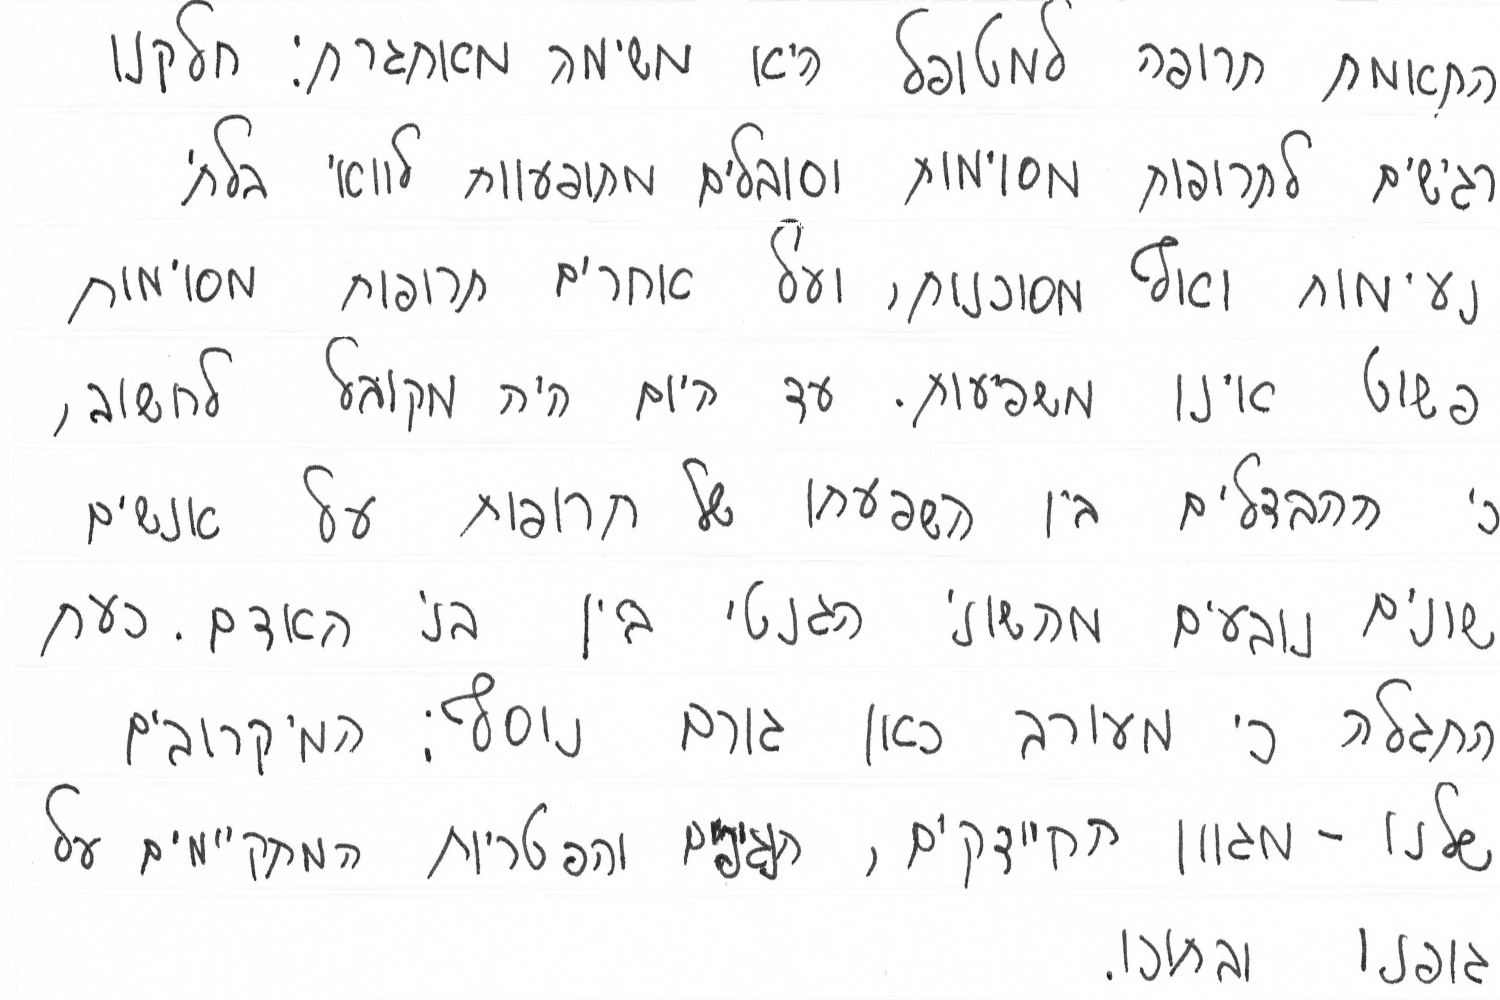 התאמת תרופה למטופל היא משימה מאתגרת: חלקנו
רגישים לתרופות מסוימות וסובלים מתופעות לוואי בלתי
נעימות ואף מסוכנות, ועל אחרים תרופות מסוימות
פשוט אינו משפיעות. עד היום היה מקובל לחשוב,
כי ההבדלים בין השפעתו של תרופות על אנשים
שונים נובעים מהשוני הגנטי בין בני האדם. כעת
התגלה כי מעורב כאן גורם נוסף: המיקרובים
שלנו - מגוון החיידקים, הנגיפים והפטריות המתקיימים על
גופנו ובתוכו.